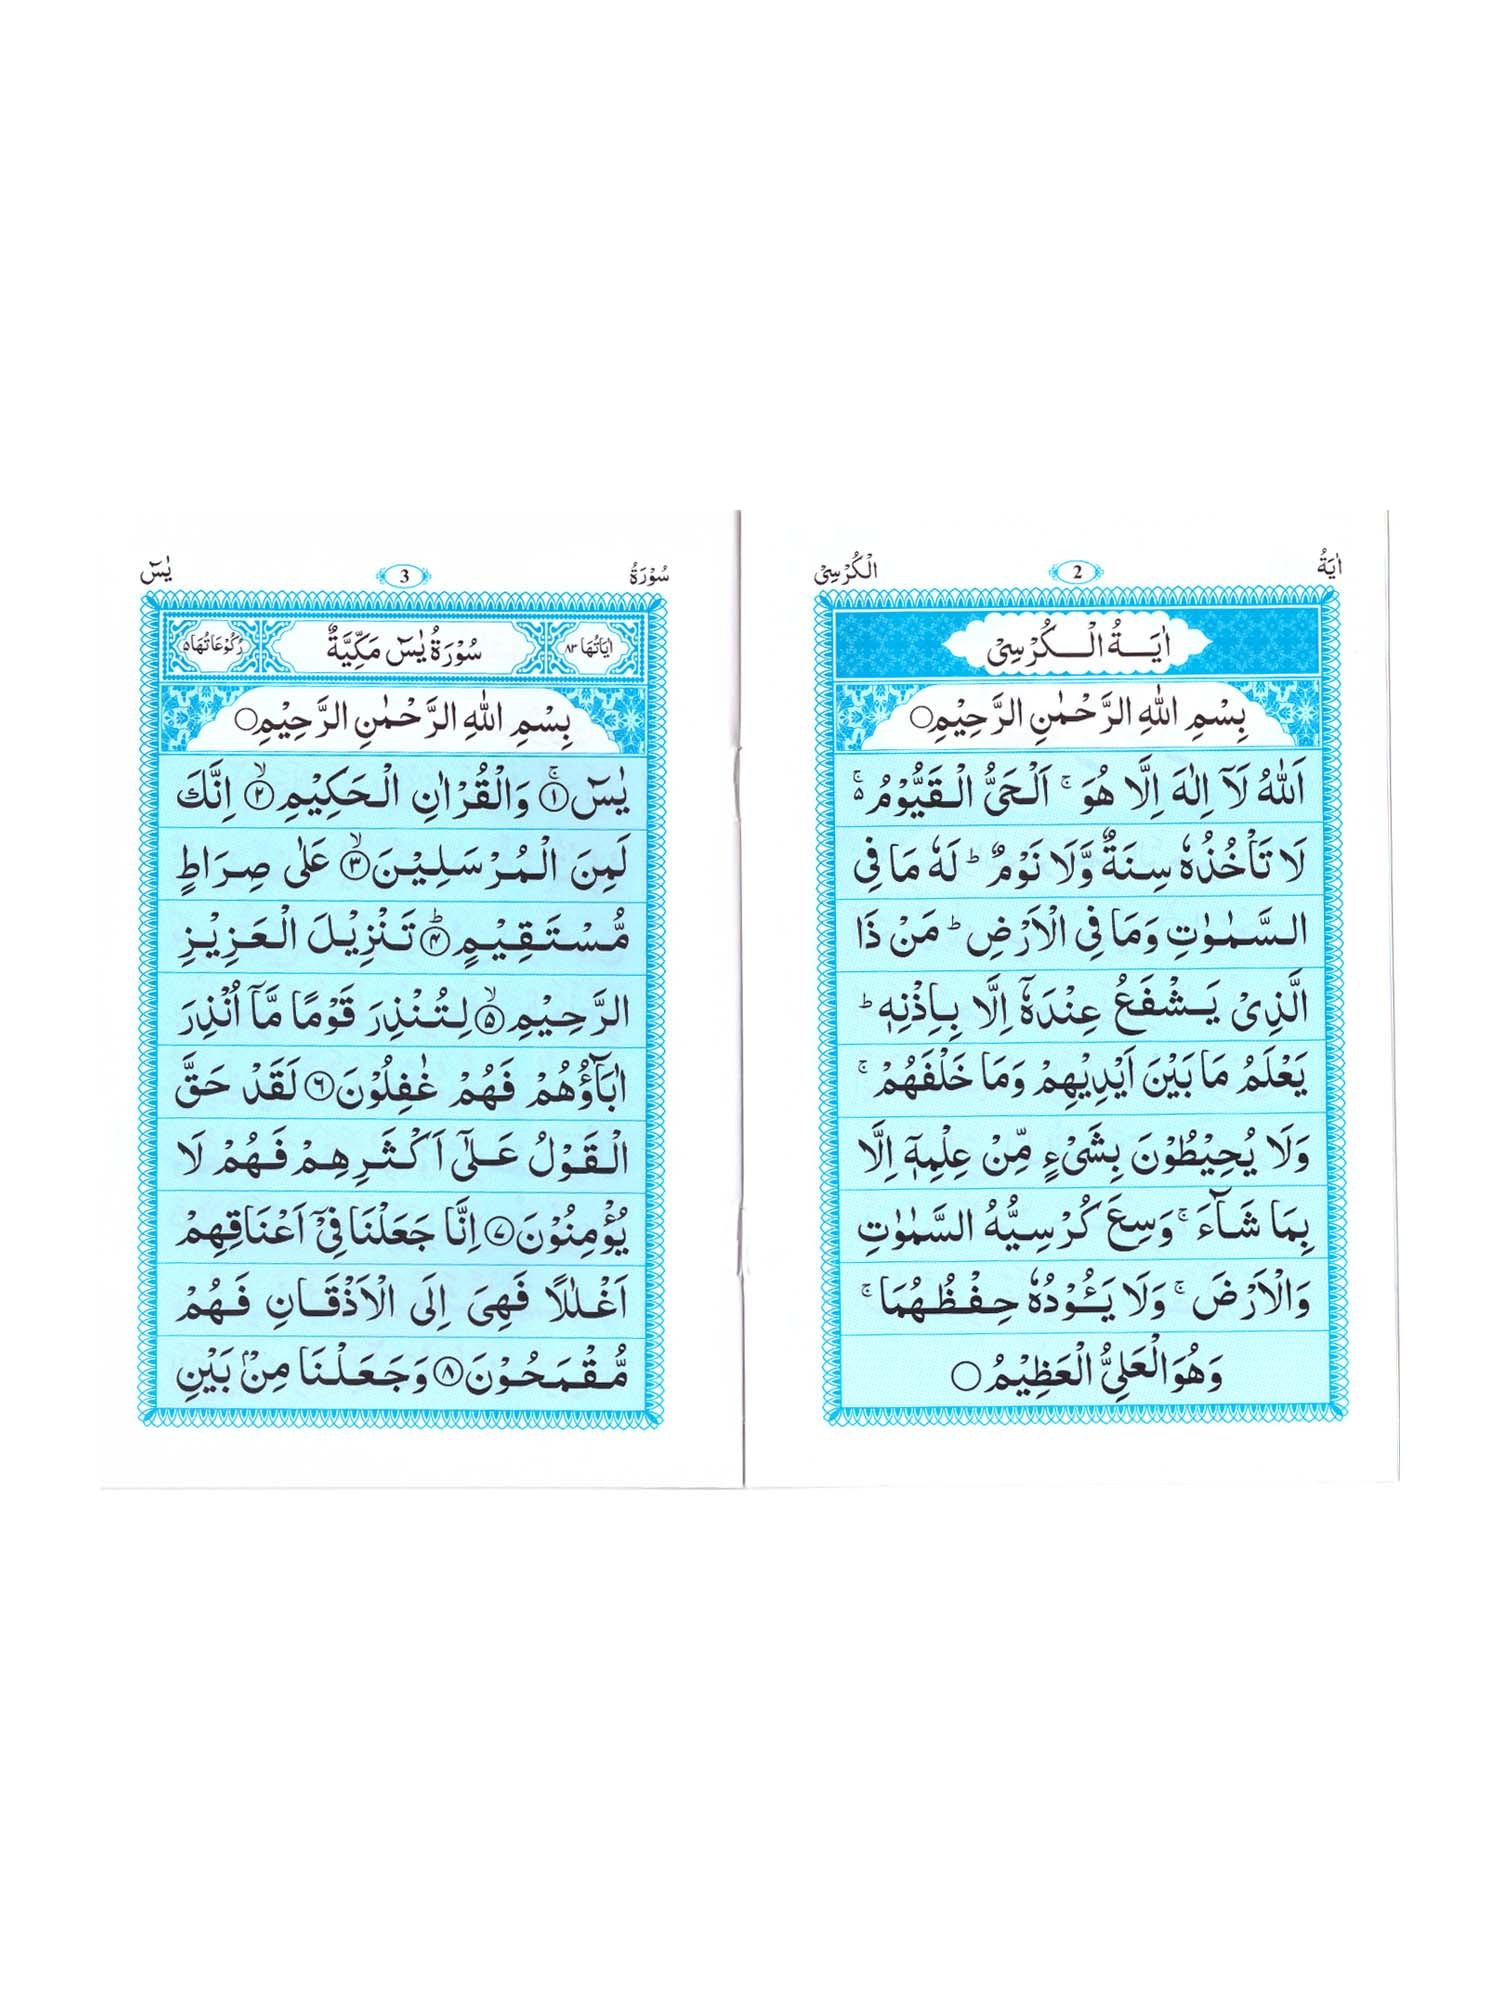 اٰيَةُ
2
الْكُرْسِيّ
اٰيَةُ الْكُرْسِيّ
بِسْمِ اللهِ الرَّحْمٰنِ الرَّحِيْمِ○
اَللهُ لَآ اِلٰهَ اِلَّا هُوَ ۚ اَلْحَيُّ الْقَيُّوْمُ ۬ۚ
لَا تَاْخُذُهٗ سِنَةٌ وَّلَا نَوْمٌ ؕ لَهٗ مَا فِي
السَّمٰوٰتِ وَمَا فِي الْاَرْضِ ؕ مَنْ ذَا
الَّذِيْ يَشْفَعُ عِنْدَهٗٓ اِلَّا بِاِذْنِهٖ ؕ
يَعْلَمُ مَا بَيْنَ اَيْدِيْهِمْ وَمَا خَلْفَهُمْ ۚ
وَلَا يُحِيْطُوْنَ بِشَيْءٍ مِّنْ عِلْمِهٖٓ اِلَّا
بِمَا شَآءَ ۚ وَسِعَ كُرْسِيُّهُ السَّمٰوٰتِ
وَالْاَرْضَ ۚ وَلَا يَـُٔوْدُهٗ حِفْظُهُمَا ۚ
وَهُوَ الْعَلِيُّ الْعَظِيْمُ ○
سُوْرَةُ
3
يٰسٓ
اٰيَاتُهَا ۸۳
سُوْرَةُ يٰسٓ مَكِّيَّةٌ
رُكُوْعَاتُهَا ۵
بِسْمِ اللهِ الرَّحْمٰنِ الرَّحِيْمِ○
يٰسٓ ۚ﴿۱﴾ وَالْقُرْاٰنِ الْحَكِيْمِ ۙ﴿۲﴾ اِنَّكَ
لَمِنَ الْمُرْسَلِيْنَ ۙ﴿۳﴾ عَلٰى صِرَاطٍ
مُّسْتَقِيْمٍ ؕ﴿۴﴾ تَنْزِيْلَ الْعَزِيْزِ
الرَّحِيْمِ ۙ﴿۵﴾ لِتُنْذِرَ قَوْمًا مَّآ اُنْذِرَ
اٰبَآؤُهُمْ فَهُمْ غٰفِلُوْنَ ﴿۶﴾ لَقَدْ حَقَّ
الْقَوْلُ عَلٰٓى اَكْثَرِهِمْ فَهُمْ لَا
يُؤْمِنُوْنَ ﴿۷﴾ اِنَّا جَعَلْنَا فِيْٓ اَعْنَاقِهِمْ
اَغْلٰلًا فَهِيَ اِلَى الْاَذْقَانِ فَهُمْ
مُّقْمَحُوْنَ ﴿۸﴾ وَجَعَلْنَا مِنْۢ بَيْنِ